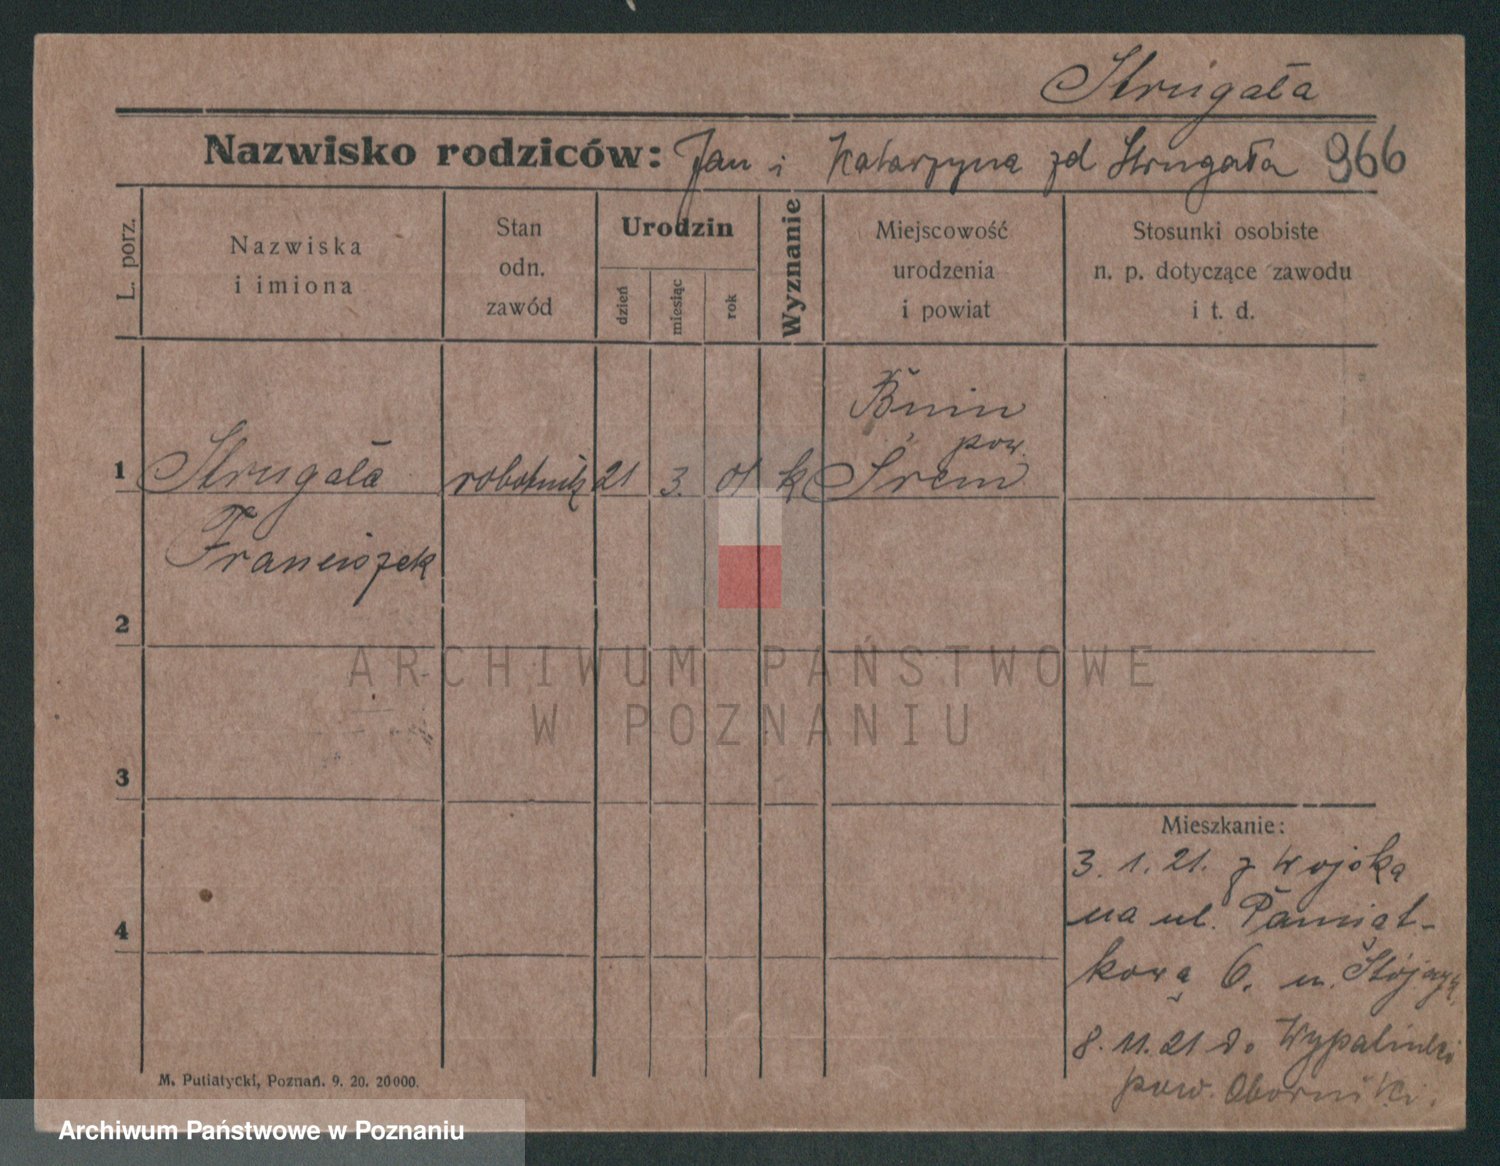 Strugała
Nazwisko rodziców: Jan i Katarzyna zd Strugała 966
L. porz.
Nazwiska
i imiona
Stan
odn.
zawód
Urodzin
dzień
miesiąc
rok
Wyznanie
Miejscowość
urodzenia
i powiat
Stosunki osobiste
n. p. dotyczące zawodu
i t. d.
Bnin
pow.
1 Strugała robotnik 21 3. 01 k Śrem
Franciszek
2
3
4
Mieszkanie:
3. 1. 21. z wojska
na ul. Pamiąt-
kową 6. u.
8. 11. 21 do
pow. Oborniki.
M. Putiatycki, Poznań. 9. 20. 20000.
ARCHIWUM PAŃSTWOWE
W POZNANIU
Archiwum Państwowe w Poznaniu